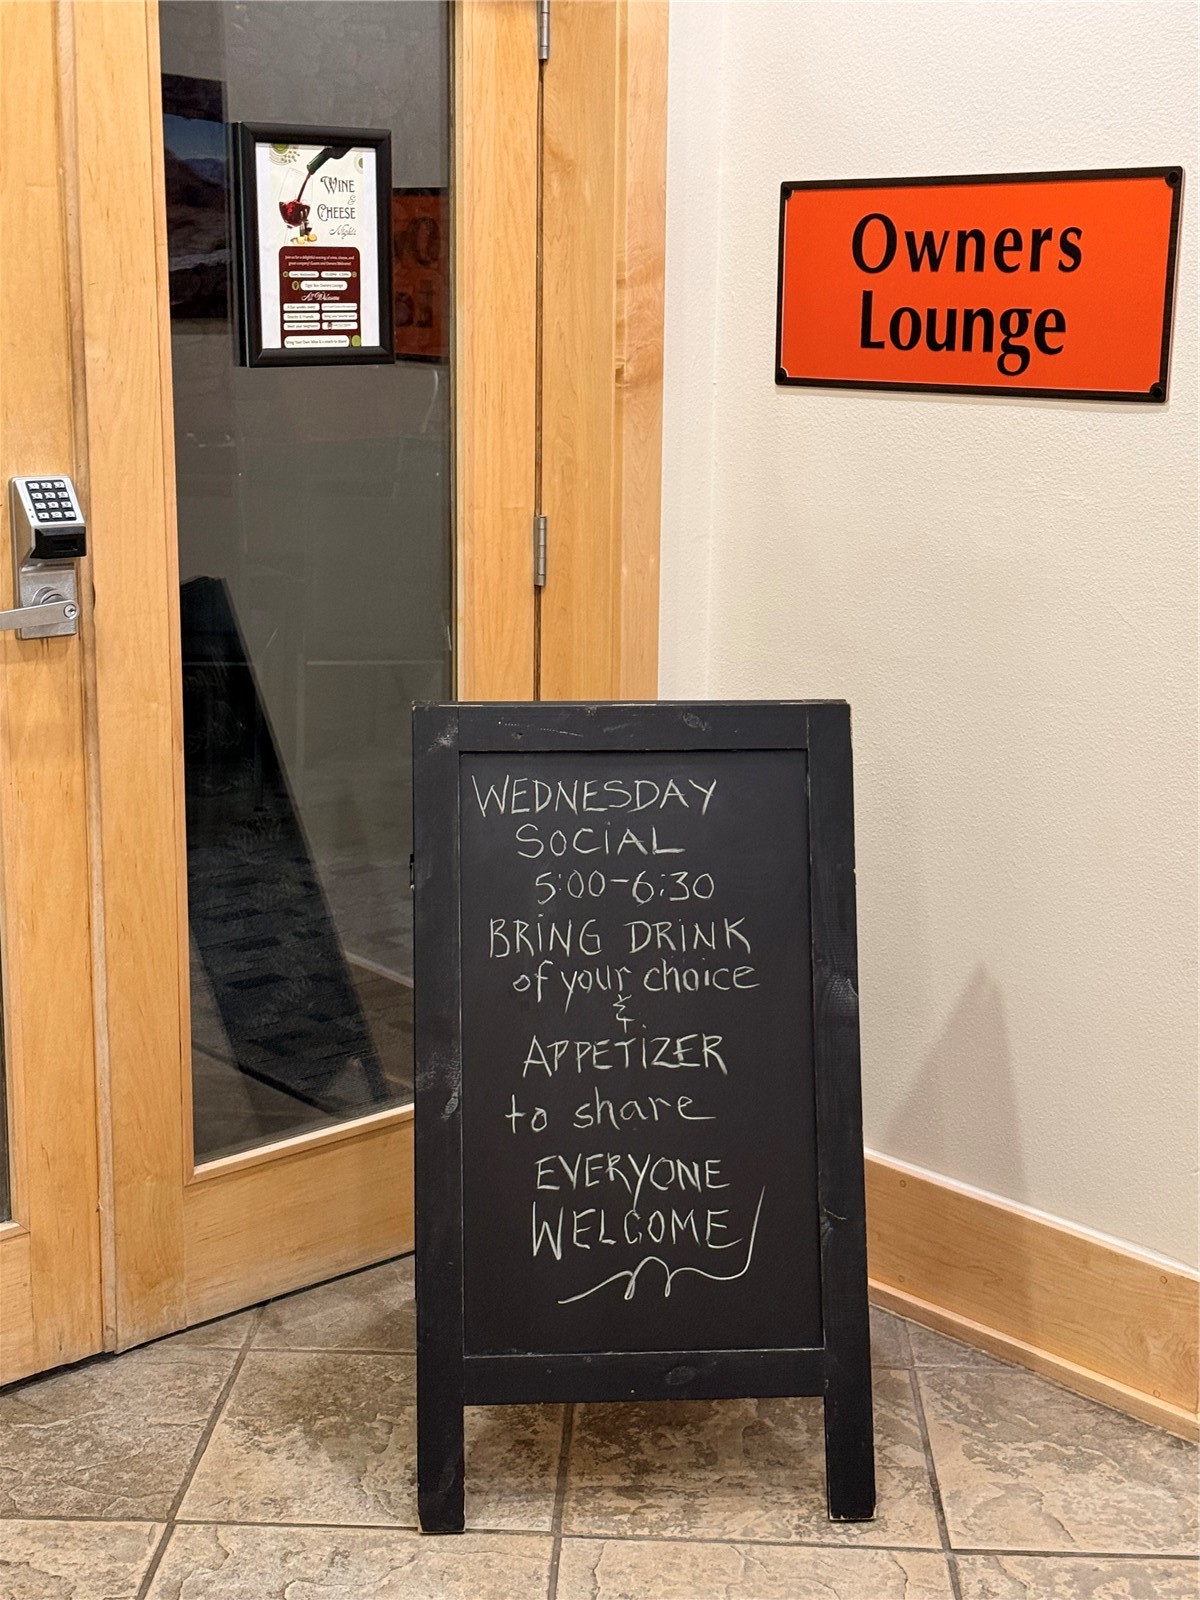 WINE
&
CHEESE
Nights
Owners
Lounge
WEDNESDAY
SOCIAL
5:00-6:30
BRING DRINK
of your choice
&
APPETIZER
to share
EVERYONE
WELCOME